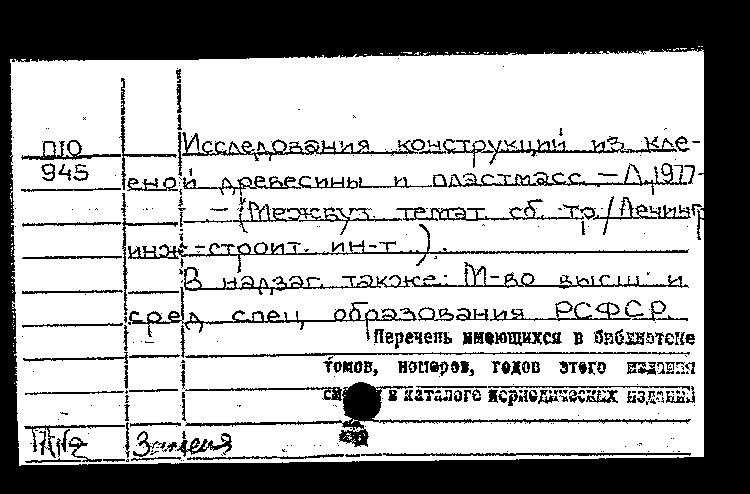 П10
945
Исследования конструкций из кле-
еной древесины и пластмасс. – Л., 1977-
. – (Межвуз. темат. сб. тр. / Ленингр.
инж.-строит. ин-т ).
В надзаг. также: М-во высш. и
сред. спец. образования РСФСР.
Перечень имеющихся в библиотеке
томов, номеров, годов этого издания
в каталоге периодических изданий